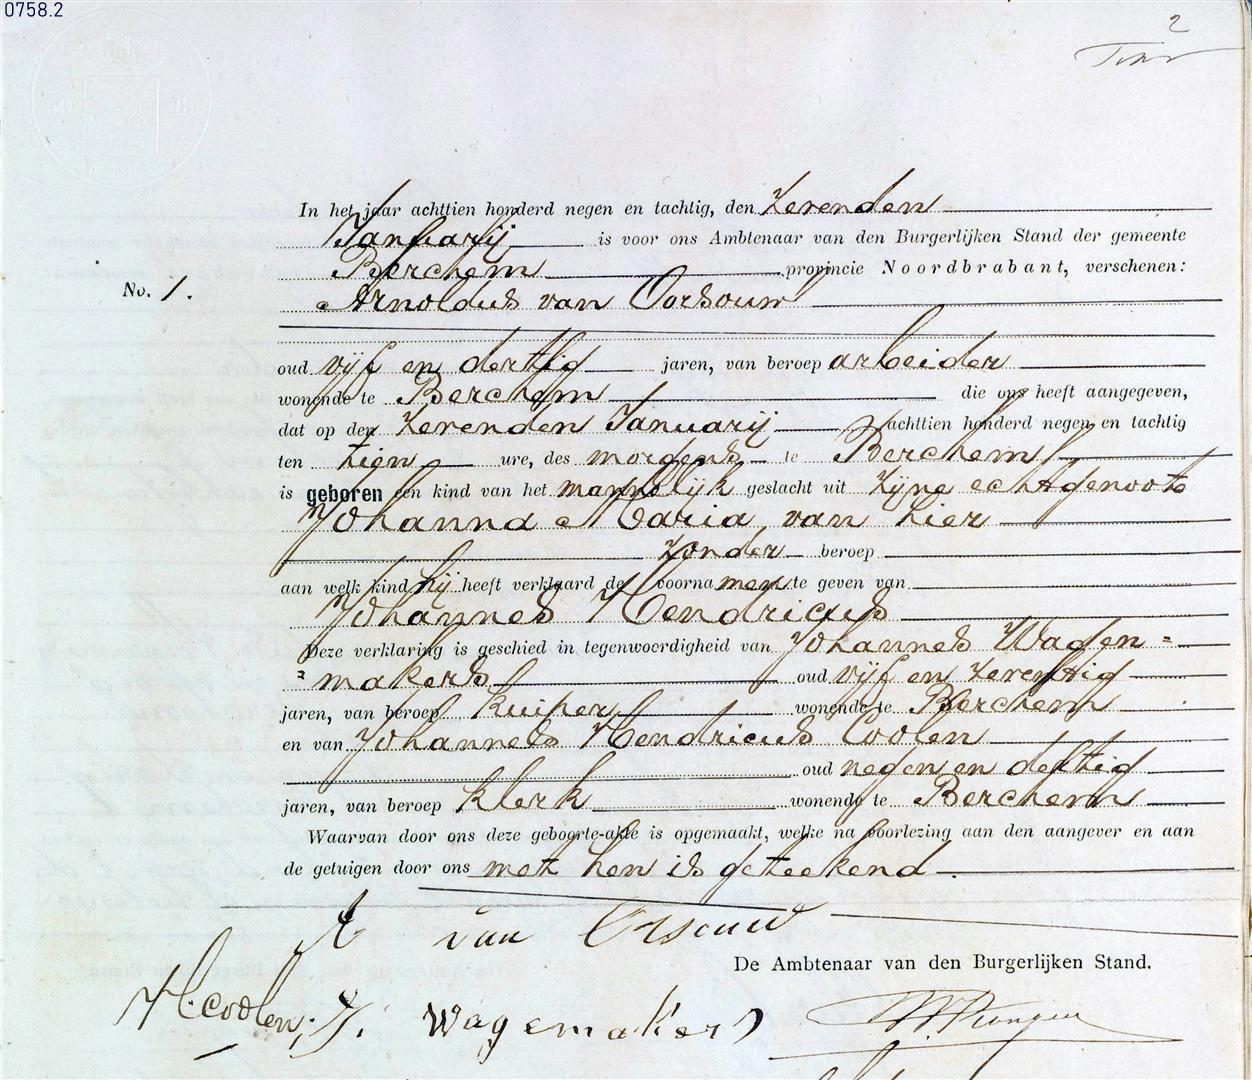 0758.2
2
In het jaar achttien honderd negen en tachtig, den Zevenden
Januarij is voor ons Ambtenaar van den Burgerlijken Stand der gemeente
Berchem provincie Noordbrabant, verschenen:
No. 1.
Arnoldus van Orsouw
oud vijf en dertig jaren, van beroep arbeider
wonende te Berchem die ons heeft aangegeven,
dat op den Zevenden Januarij achttien honderd negen en tachtig
ten tien ure, des morgens te Berchem
is geboren een kind van het mannelijk geslacht uit zijne echtgenoote
Johanna Maria van Lier
zonder beroep
aan welk kind hij heeft verklaard de voornamen te geven van
Johannes Hendricus
Deze verklaring is geschied in tegenwoordigheid van Johannes Wagen=
=makers oud vijf en zeventig
jaren, van beroep kuiper wonende te Berchem
en van Johannes Hendricus Coolen
oud negen en dertig
jaren, van beroep klerk wonende te Berchem
Waarvan door ons deze geboorte-akte is opgemaakt, welke na voorlezing aan den aangever en aan
de getuigen door ons met hen is geteekend.
A van Orsouw
De Ambtenaar van den Burgerlijken Stand.
H. Coolen. J. Wagemakers